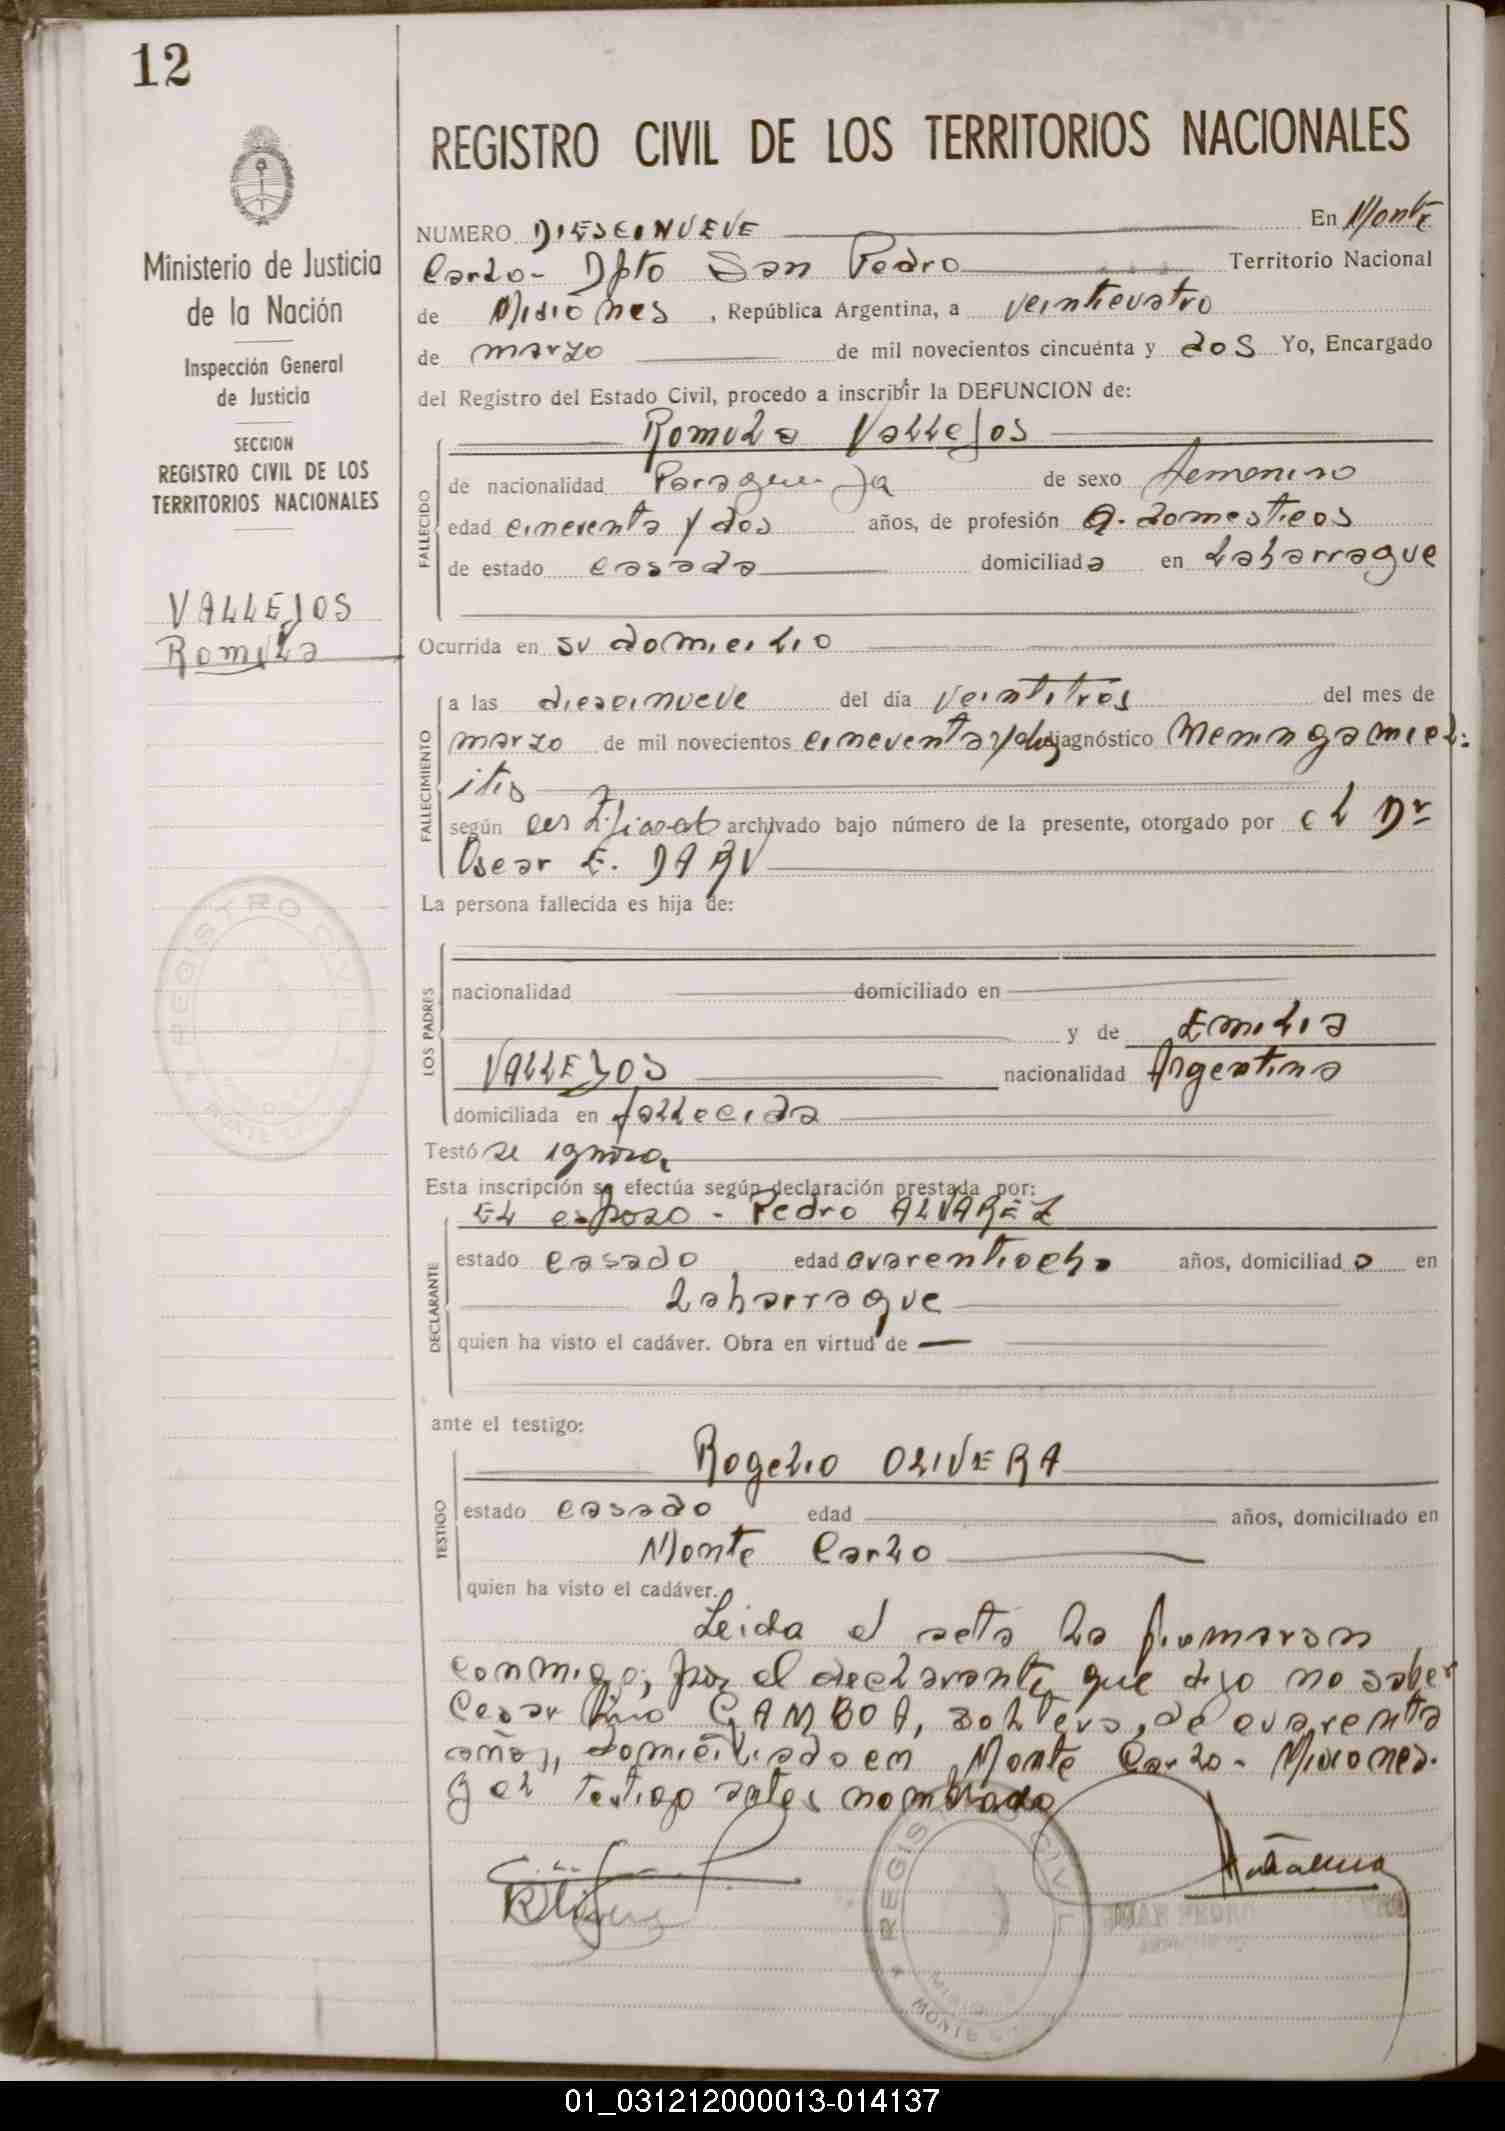 12
Ministerio de Justicia
de la Nación
Inspección General
de Justicia
SECCION
REGISTRO CIVIL DE LOS
TERRITORIOS NACIONALES
VALLEJOS
Romula
REGISTRO CIVIL DE LOS TERRITORIOS NACIONALES
NUMERO DIESEINUEVE En Monte
Carlo - Dpto San Pedro Territorio Nacional
de Misiones, República Argentina, a veinticuatro
de marzo de mil novecientos cincuenta y dos Yo, Encargado
del Registro del Estado Civil, procedo a inscribir la DEFUNCION de:
Romula Vallejos
FALLECIDO
de nacionalidad Paraguaya de sexo femenino
edad cincuenta y dos años, de profesión Q. domesticos
de estado casada domiciliada en Laharrague
Ocurrida en su domicilio
FALLECIMIENTO
a las dieseinueve del día veintitres del mes de
marzo de mil novecientos cincuenta y dos diagnóstico Meningomiel:
itis
según certificado archivado bajo número de la presente, otorgado por el Dr
Oscar E. DARU
La persona fallecida es hija de:
LOS PADRES
nacionalidad domiciliado en
y de Emilia
VALLEJOS nacionalidad Argentina
domiciliada en fallecida
Testó se ignora
Esta inscripción se efectúa según declaración prestada por:
El esposo - Pedro ALVAREZ
DECLARANTE
estado casado edad cuarentiocho años, domiciliado en
Laharrague
quien ha visto el cadáver. Obra en virtud de —
ante el testigo:
Rogelio OLIVERA
TESTIGO
estado casado edad años, domiciliado en
Monte Carlo
quien ha visto el cadáver.
Leida el acta la firmaron
conmigo; por el declarante que dijo no saber
Cesar GAMBOA, soltero, de cuarenta
años, domiciliado en Monte Carlo - Misiones.
y el testigo antes nombrado
REGISTRO CIVIL
MONTE
01_031212000013-014137